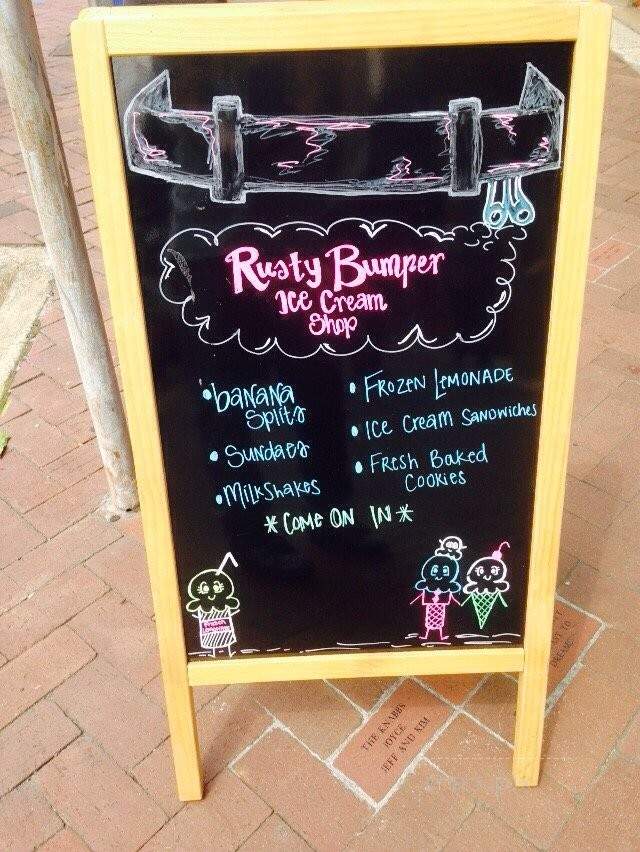 Rusty Bumper
Ice Cream
Shop
• banana
Splits
• Sundaes
• Milkshakes
• FROZEN LEMONADE
• Ice Cream Sandwiches
• Fresh Baked
Cookies
* COME ON IN *
Frozen
Lemonade
THE KNABBS
JOYCE
JEFF AND KIM
DREAM